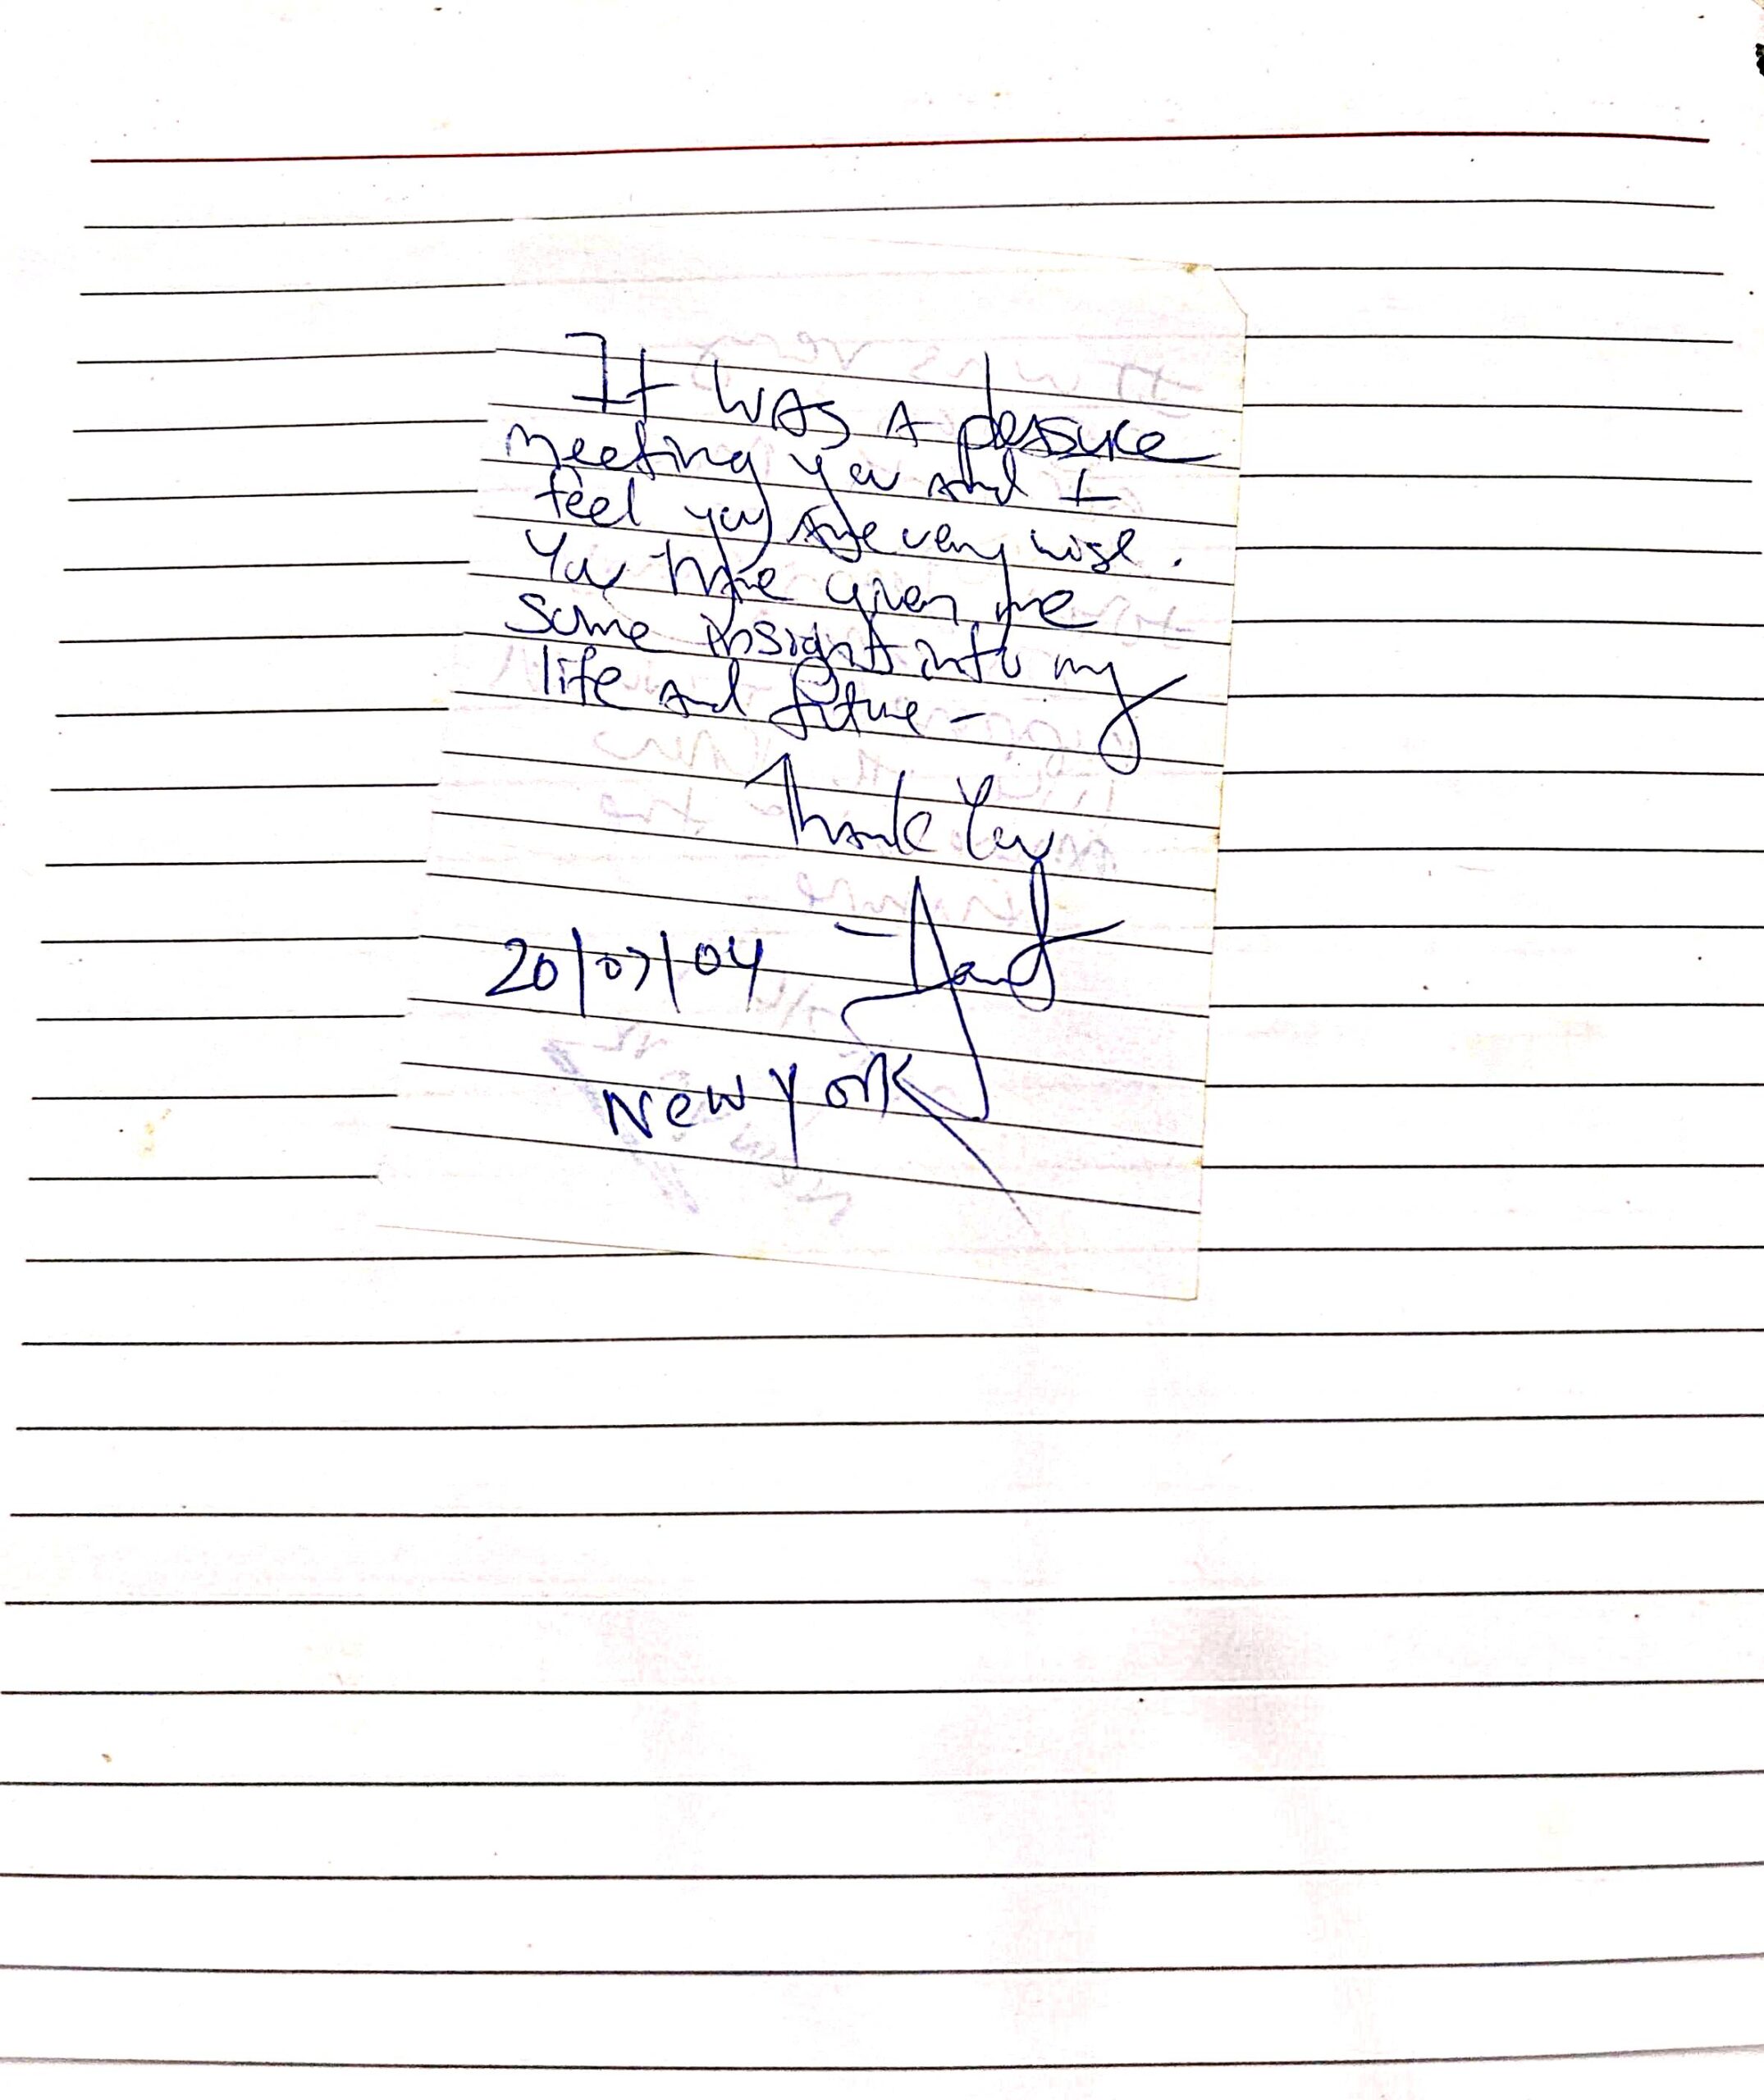 It was A plessure
meeting you and I
feel you are very wise.
You have given me
some insight into my
life and future -
Thank You
20/07/04
New York